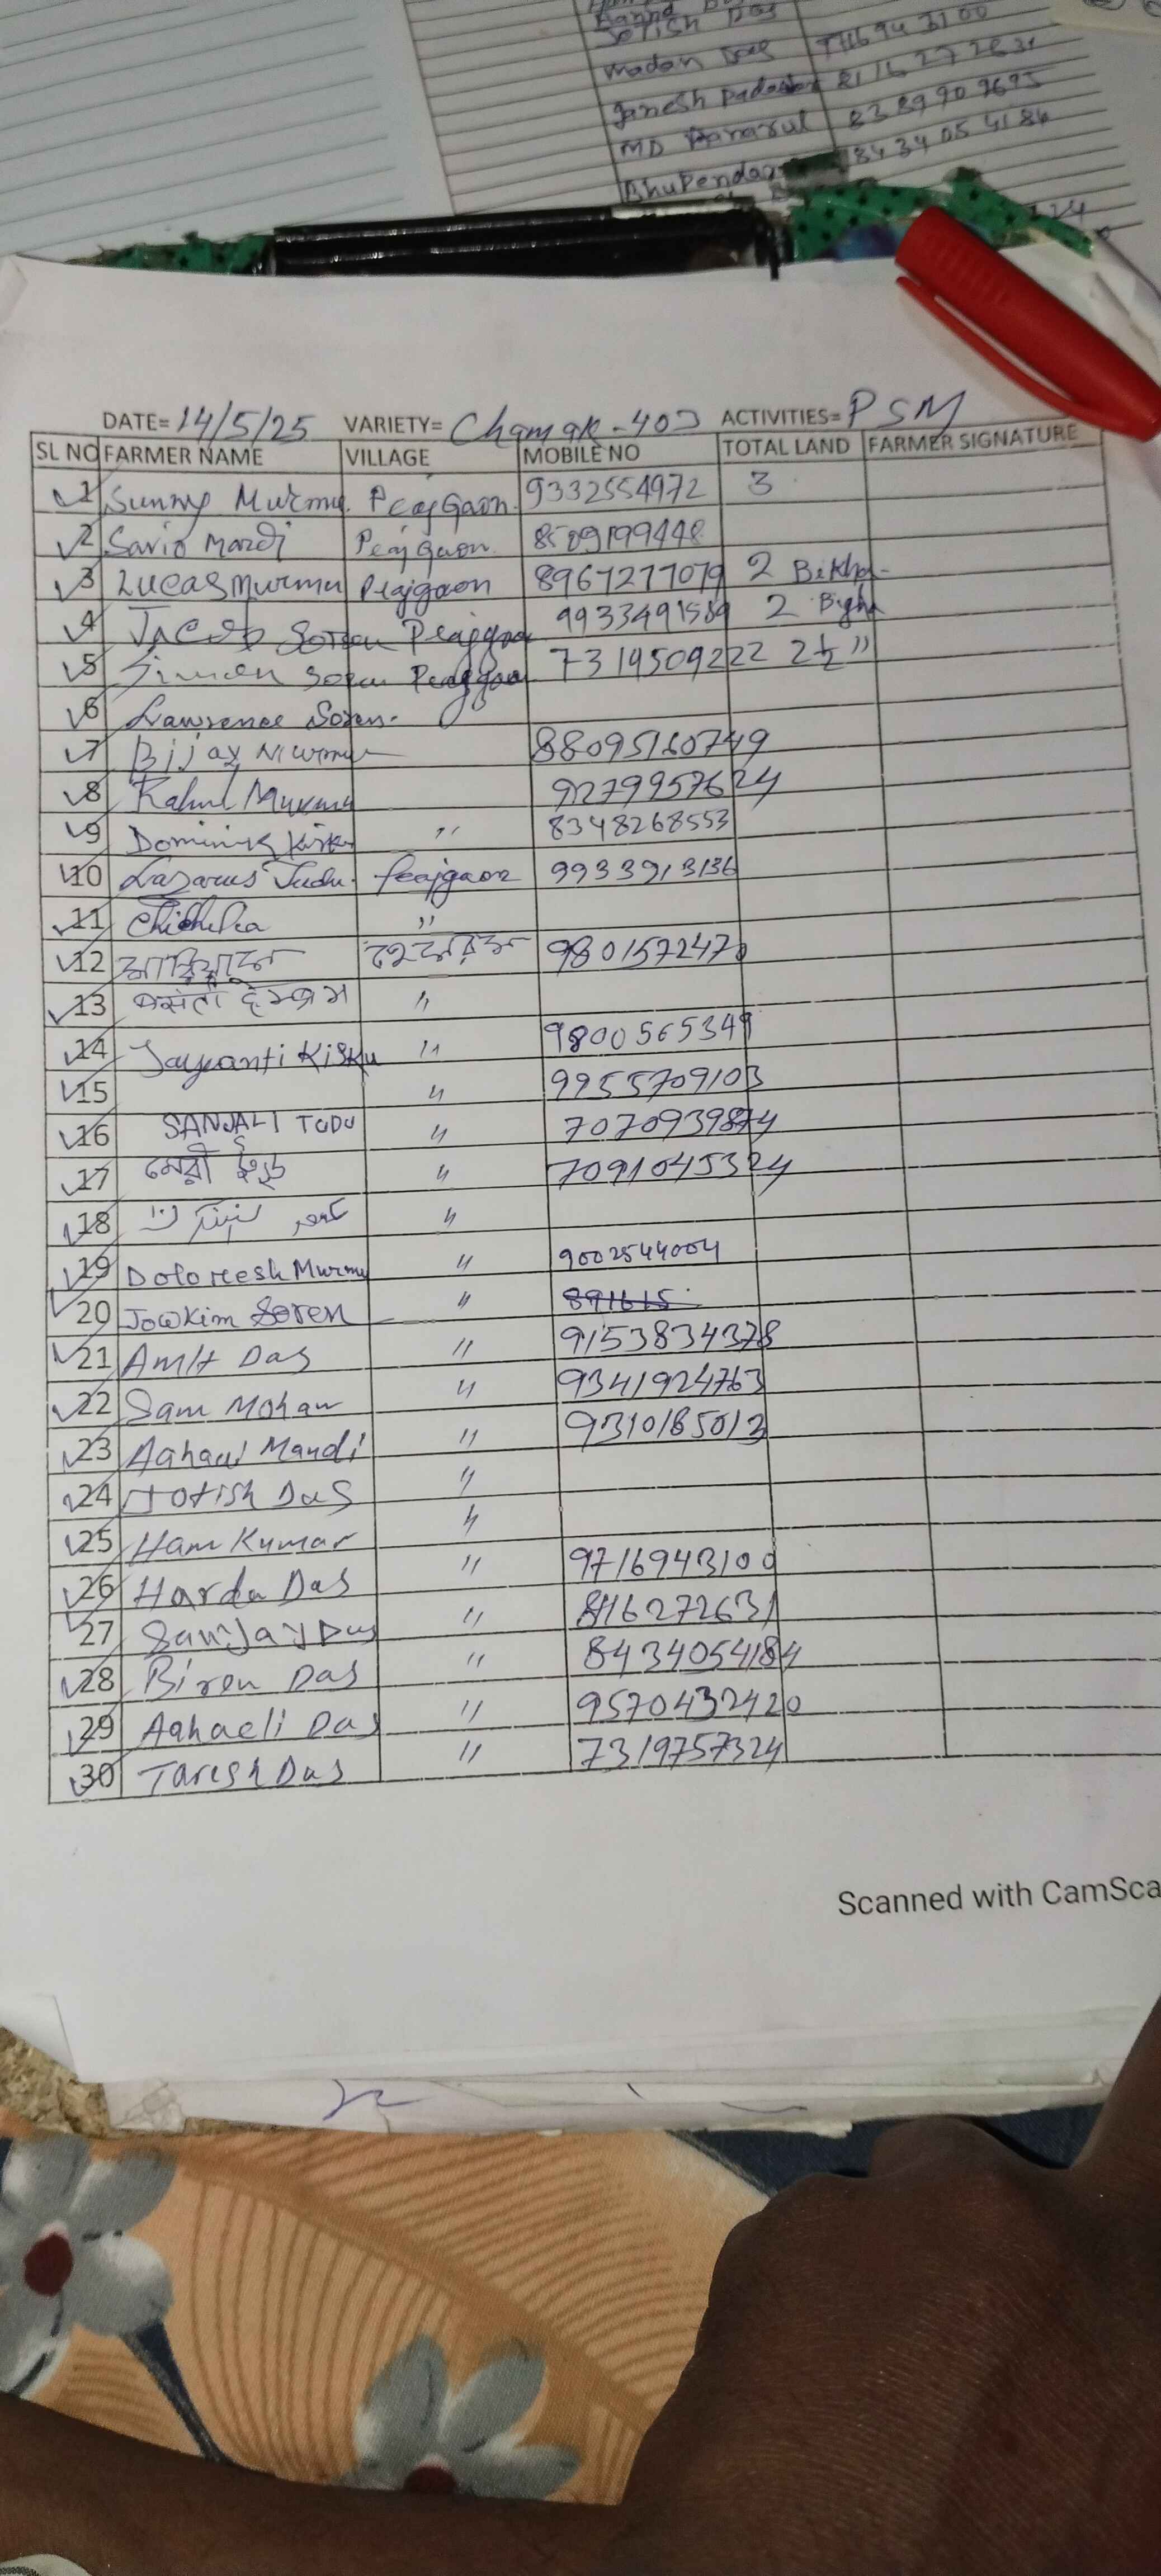 Jotish Das
Madan Das 9716943100
Ganesh 8116272631
MD 8389909695
Bhupendar 8434054184
DATE= 14/5/25 VARIETY= Chamak-403 ACTIVITIES= PSM
SL NO FARMER NAME VILLAGE MOBILE NO TOTAL LAND FARMER SIGNATURE
1 Sunny Murmu. Peajgaon. 9332554972 3
2 Savio Mardi Peajgaon. 8509199448
3 Lucas Murmu Peajgaon 8967277079 2
4 Jacob Soren Peajgaon 9933491589 2 Bigha
5 Simon Soren Peajgaon 7319509222 2½ "
6 Lawrence Soren.
7 Bijay Murmu 88095160749
8 Rahul Murmu 9279957624
9 Dominik Kisku " 8348268553
10 Lazarus Tudu. Peajgaon 9933913136
11 "
12 9801572470
13 "
14 Jayanti Kisku " 9800565349
15 " 9955709103
16 SANJALI TUDU " 7070939874
17 " 7091045324
18 "
19 Doloreesh Murmu " 9002544004
20 Jowkim Soren " 891615
21 Amit Das " 9153834378
22 Sam Mohan " 9341924763
23 Aghani Mandi " 9310185013
24 Jotish Das "
25 Ham Kumar "
26 Harda Das " 9716943100
27 Sanjay Das " 8116272631
28 Biren Das " 8434054184
29 Aghaeli Das " 9570432420
30 Taresh Das " 7319757324
Scanned with CamSca